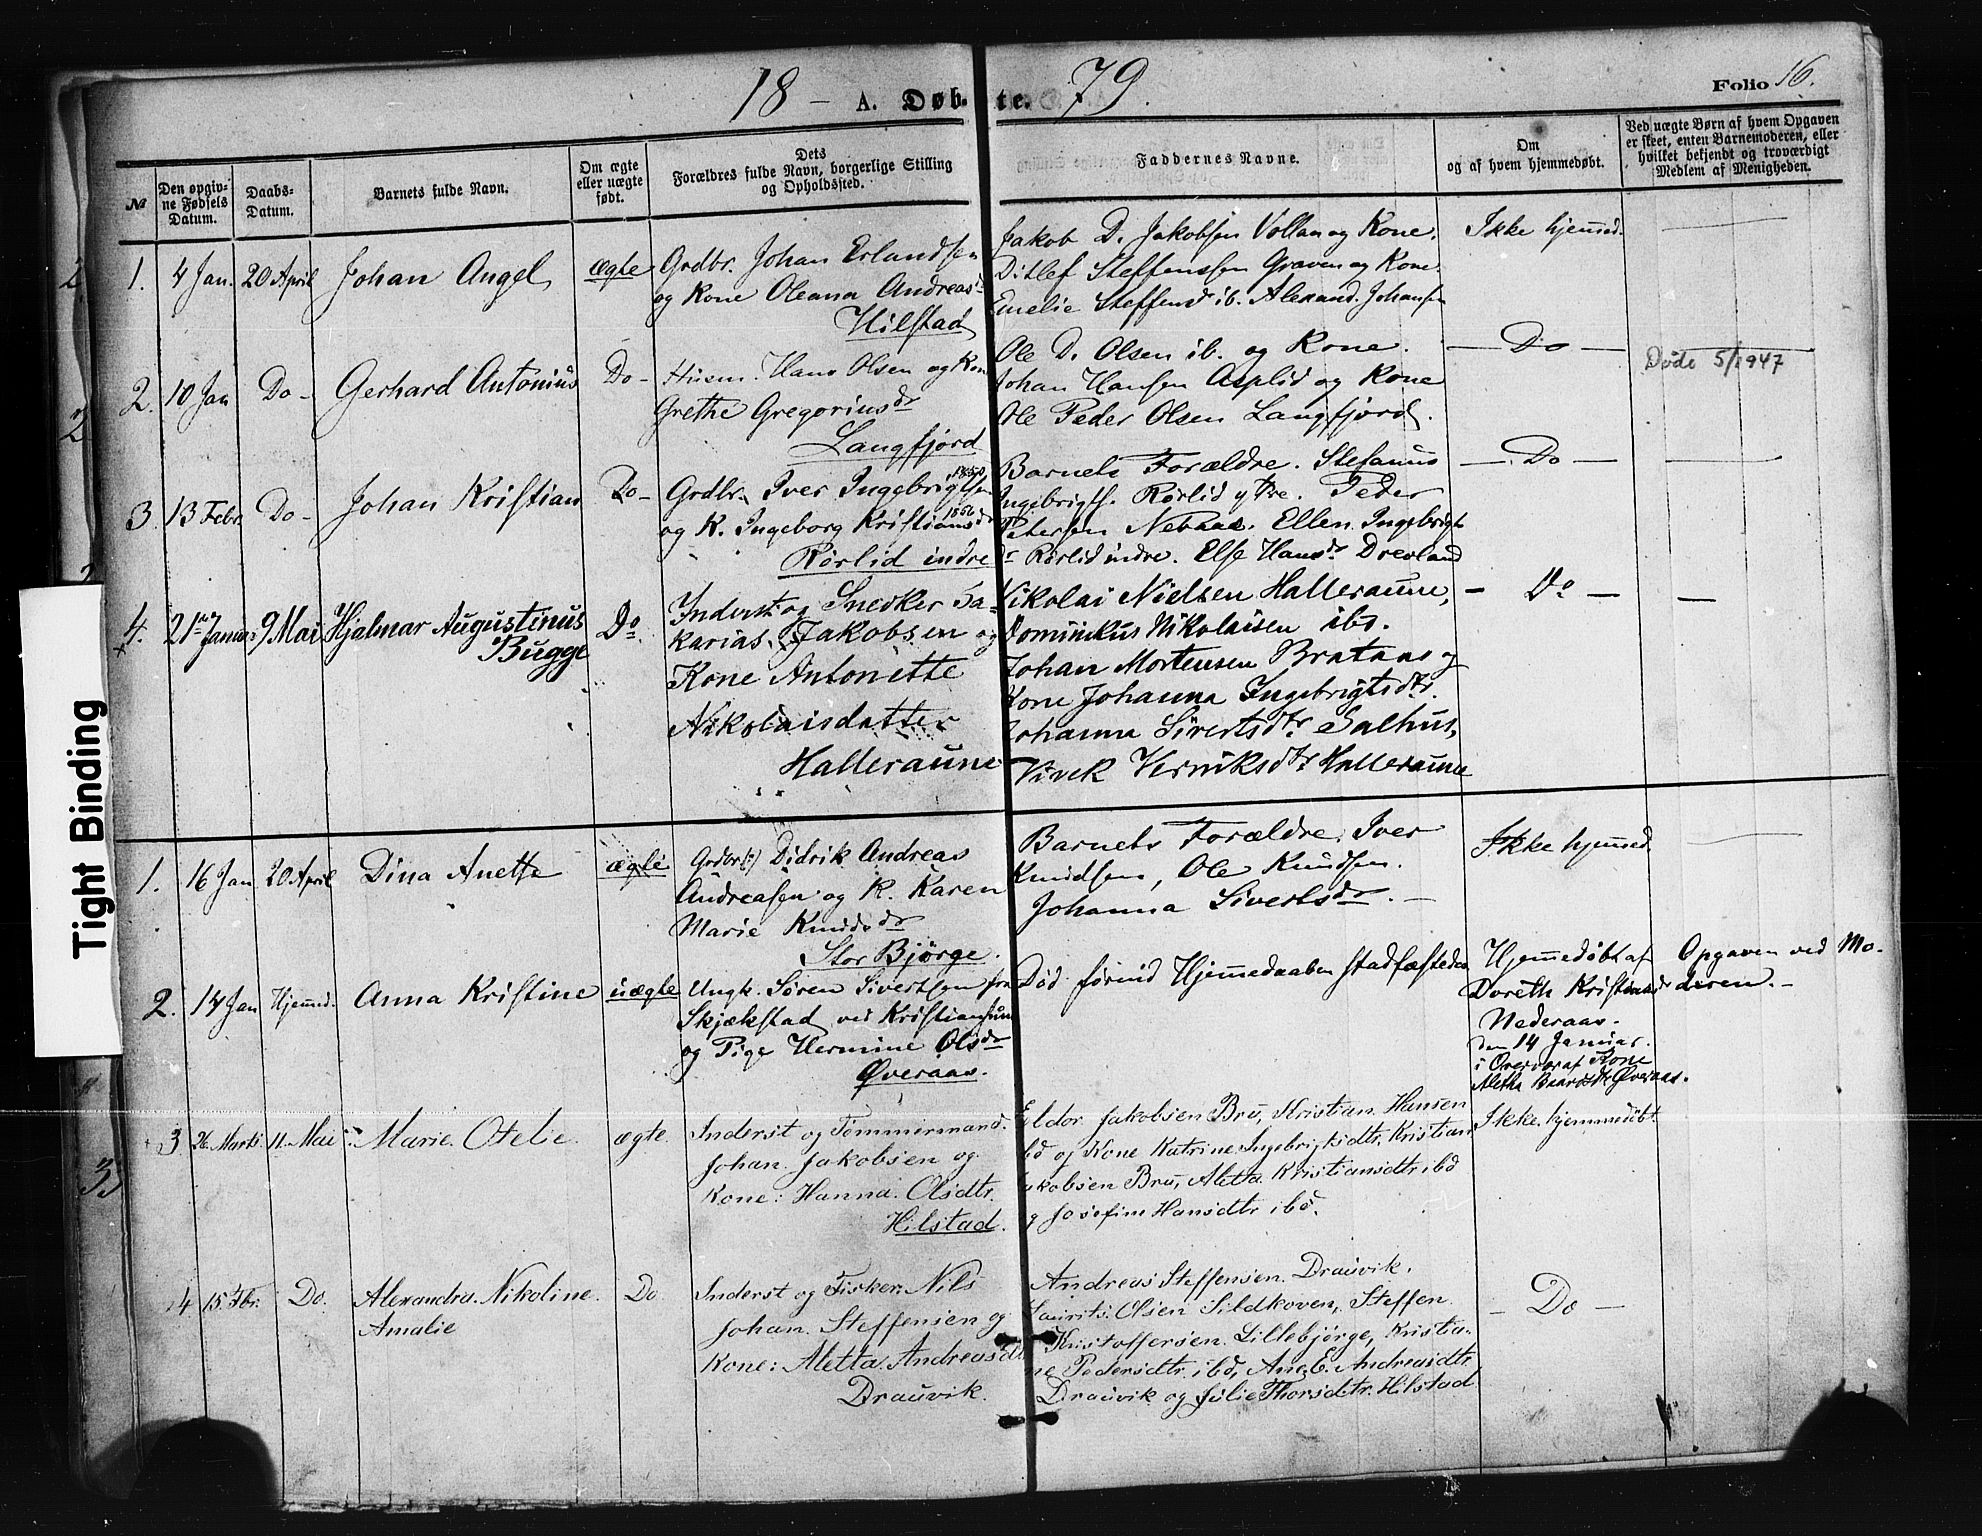 18 – A. Døb- te. 79.
Folio 16.
№
Den opgiv-
ne Fødsels
Datum.
Daabs-
Datum.
Barnets fulde Navn.
Om ægte
eller uægte
født.
Dets
Forældres fulde Navn, borgerlige Stilling
og Opholdssted.
Faddernes Navne.
Om
og af hvem hjemmedøbt.
Ved uægte Børn af hvem Opgaven
er skeet, enten Barnemoderen, eller
hvilket bekjendt og troværdigt
Medlem af Menigheden.
1. 4 Jan. 20 April Johan Angel ægte
Grdbr. Johan Erlandsen
og Kone Oleana Andreasdr
Hilstad
Jakob D. Jakobsen Vollan og Kone.
Ditlef Steffenssen Graven og Kone.
Emelie Steffensd ib. Alexand. Johansen
Ikke hjemmed.
2. 10 Jan Do - Gerhard Antonius Do -
Husm. Hans Olsen og Kon
Grethe Gregoriusdr
Langfjord
Ole D. Olsen ib. og Kone.
Johan Hansen Asplid og Kone
Ole Peder Olsen Langfjord.
— Do —
Døde 5/1947
3. 13 Febr. Do - Johan Kristian Do -
Grdbr. Iver Ingebrigtsen 1850
og K. Ingeborg Kristiansdr 1856
Rørlid indre
Barnets Forældre. Stefanus
Ingebrigts. Rørlid ytre. Peder
Petersen Nebaae. Ellen Ingebrigt
dr Rørlid indre. Else Hansdr Drevland
— Do —
4. 21de Januar 9 Mai Hjalmar Augustinus
Bugge
Do.
Inderst og Snedker Sa-
karias Jakobsen og
Kone Antonette
Nikolaisdatter
Halleraune
Nikolai Nielsen Halleraune,
Dominikus Nikolaisen ibd.
Johan Mortensen Brataas og
Kone Johanna Ingebrigtsdtr.
Johanna Sivertsdtr Salhus,
Vivek Henriksdtr Halleraune
— Do —
1. 16 Jan 20 April Dina Anette ægte
Grdbr(s:) Didrik Andreas
Andreasen og K. Karen
Marie Knudsdr
Stor Bjørge.
Barnets Forældre. Iver
Knudsen, Ole Knudsen.
Johanna Sivertsdr. —
Ikke hjemmed.
2. 14 Jan Hjemmed. Anna Kristine uægte
Ungk. Søren Sivertsen fra
Skjækstad ved Kristiansund
og Pige Hermine Olsdr
Øveraas.
Død førend Hjemmedaaben stadfæstedes
Hjemmedøbt af
Doreth Kristiansdr
Nederaas.
den 14 Januar.
i Overvær af Kone
Aletha Baardsdtr Øveraas.
Opgaven ved Mo-
deren. -
3 26. Marts 11. Mai Marie Otelie. ægte.
Inderst og Tømmermand.
Johan Jakobsen og
Kone: Hanna Olsdtr.
Hilstad.
Eldor Jakobsen Brø, Kristian Hansen
ibd og Kone Katrine Ingebrigtsdtr, Kristian
Jakobsen Brø, Aletta Kristiansdtr ibd
og Josefine Hansdtr ibd.
Ikke hjemmedøbt.
4 15. Fbr. Do. Alexandra Nikoline
Amalie
Do
Inderst og Fisker: Nils
Johan Steffensen og
Kone: Aletta Andreasdtr
Drauvik.
Andreas Steffensen Drauvik,
Laurits Olsen Sildkoven, Steffen
Kristoffersen Lillebjørge, Kristia-
ne Pedersdtr ibd, Ane E. Andreasdtr
Drauvik og Julie Thorsdtr. Hilstad
— Do —
Tight Binding